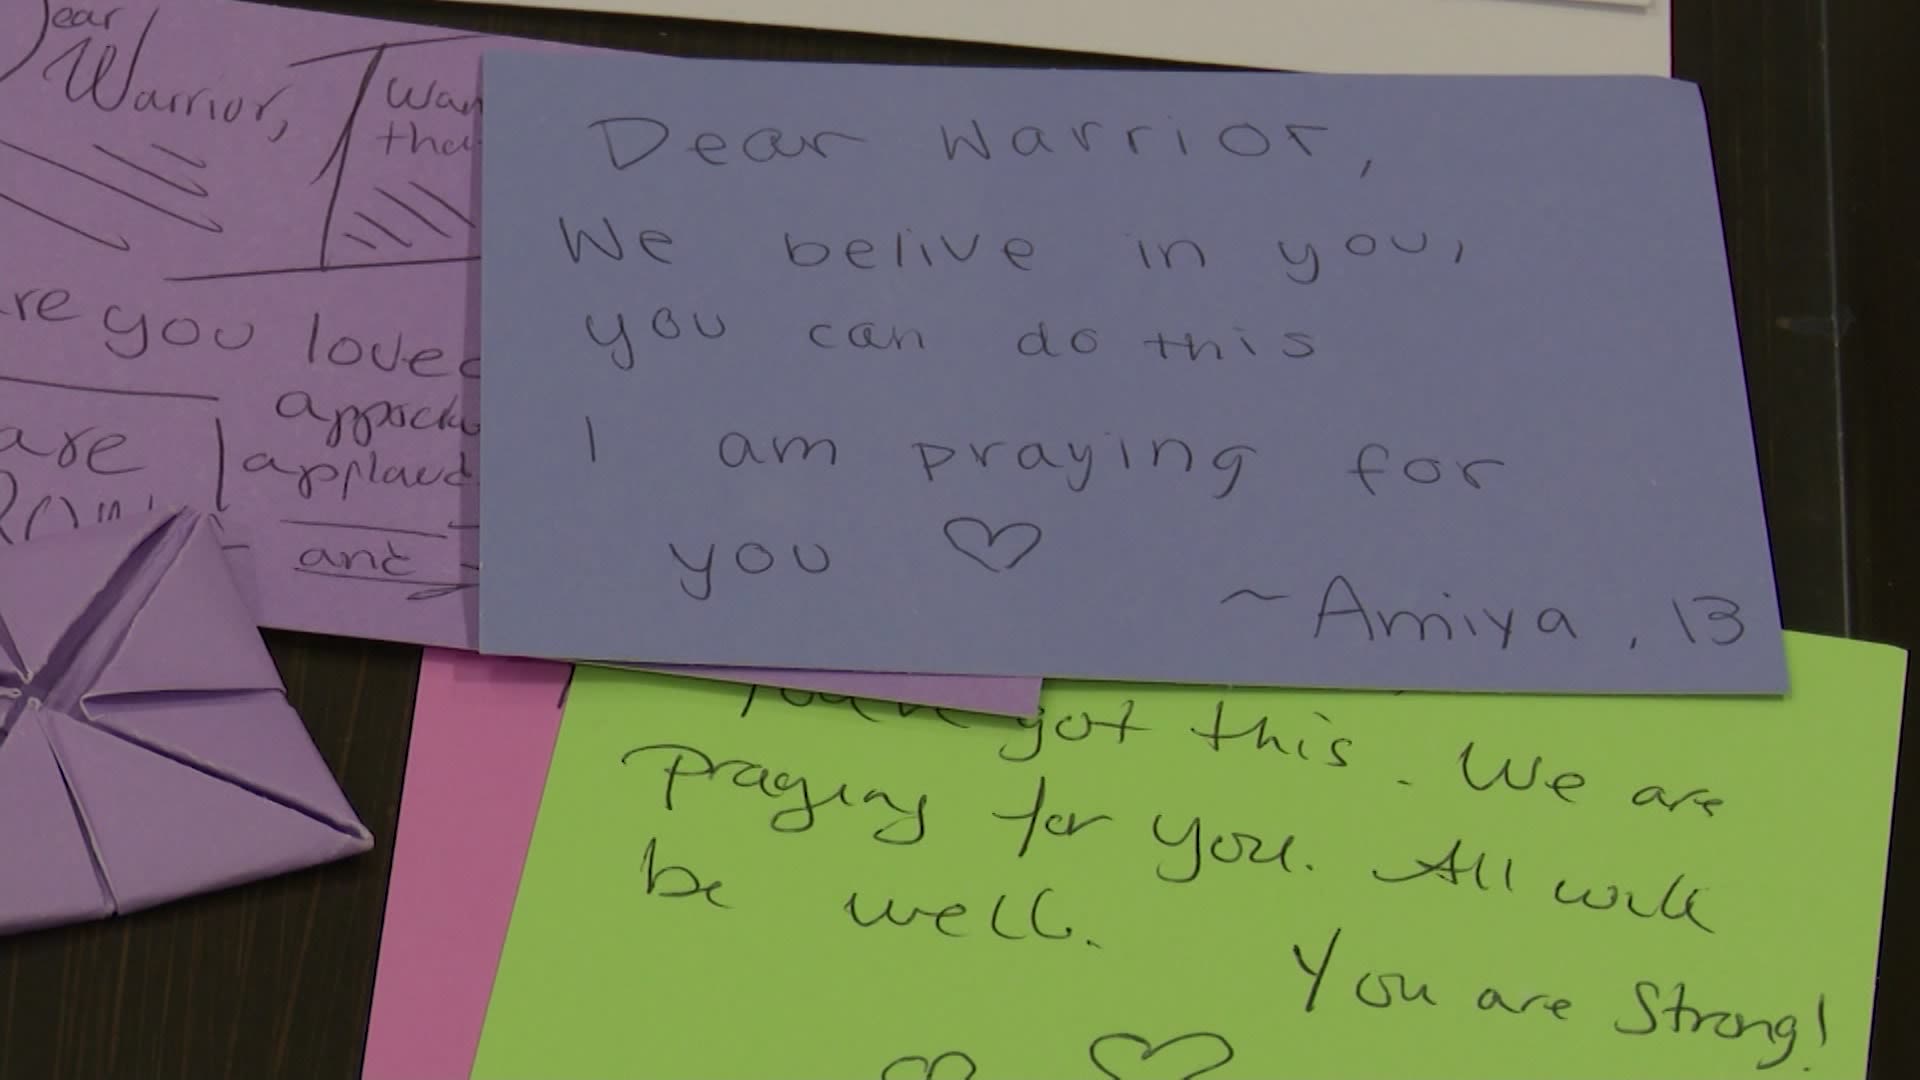 Dear
Warrior,
I
re you loved
are
applaud
and
Dear Warrior,
We belive in you,
you can do this
I am praying for
you ♡
~Amiya, 13
You've got this. We are
praying for you. All will
be well.
You are Strong!